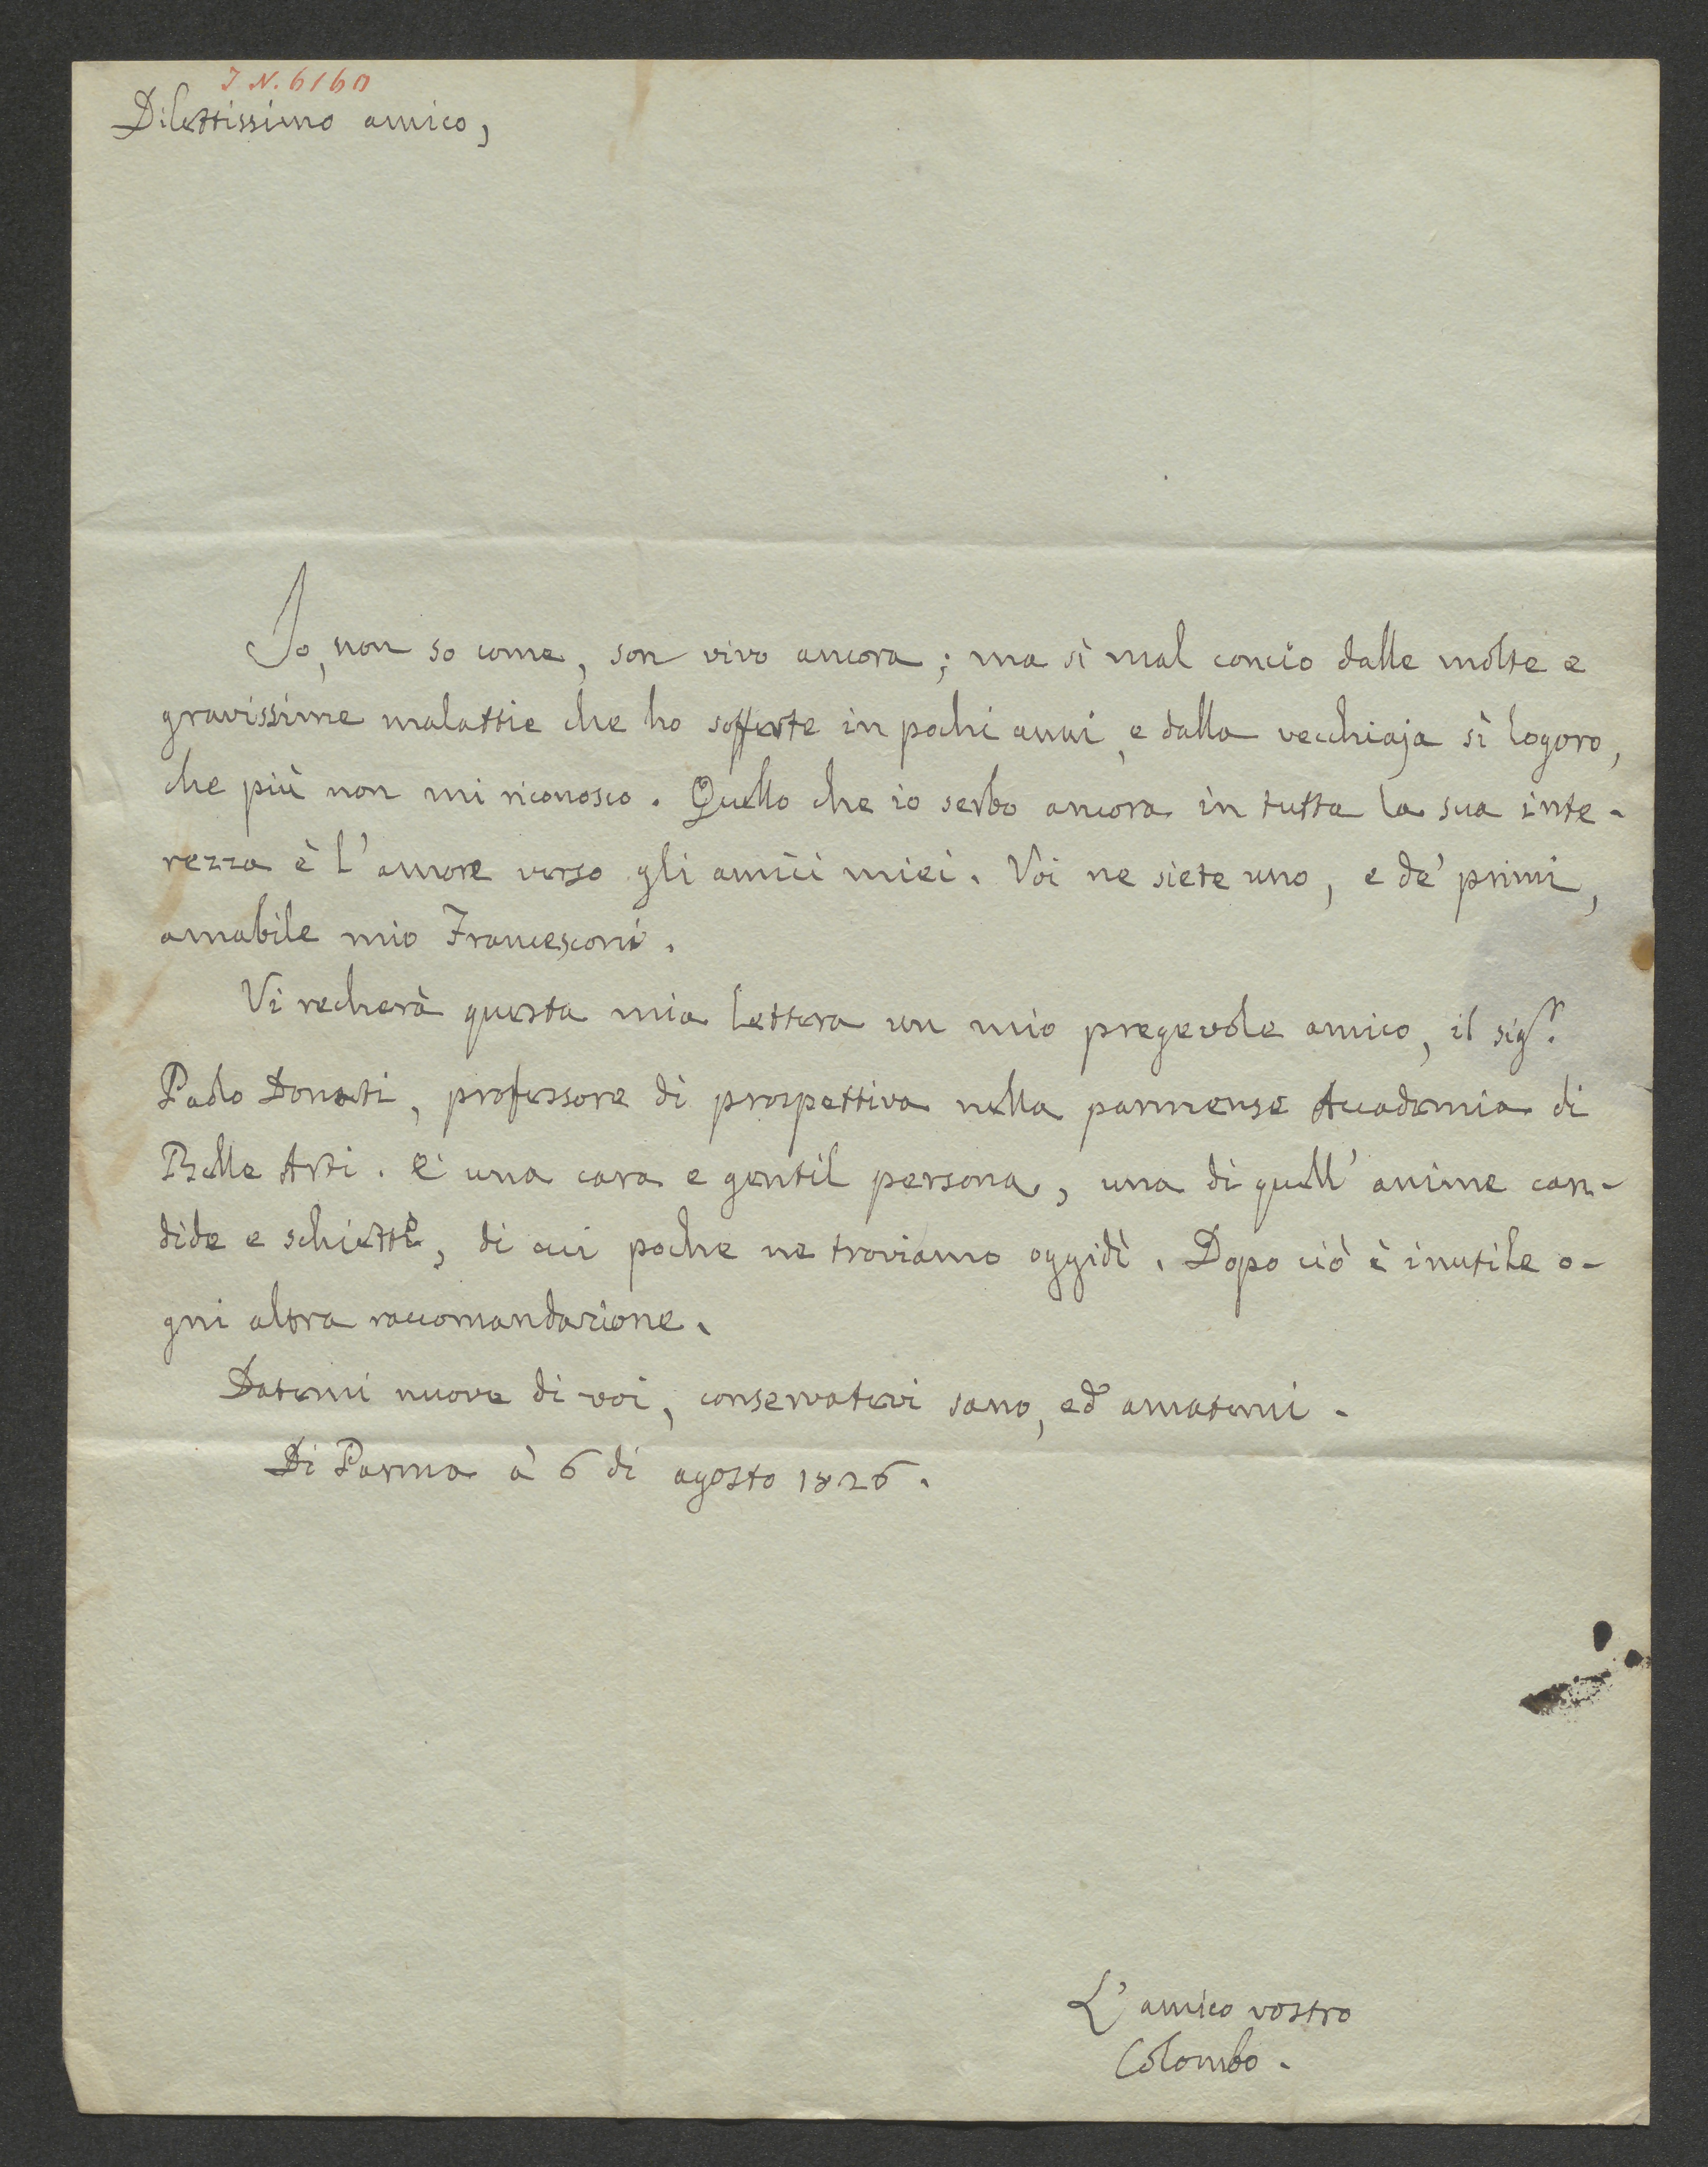 J. N. 6160
Dilettissimo amico,
Io, non so come, son vivo ancora; ma sì mal concio dalle molte e
gravissime malattie che ho sofferte in pochi anni, e dalla vecchiaja sì logoro,
che più non mi riconosco. Quello che io serbo ancora in tutta la sua inte-
rezza è l'amore verso gli amici miei. Voi ne siete uno, e de' primi,
amabile mio Francesconi.
Vi recherà questa mia lettera un mio pregevole amico, il sigr.
Paolo Donati, professore di prospettiva nella parmense Accademia di
Belle Arti. È una cara e gentil persona, una di quell' anime can-
dide e schiette, di cui poche ne troviamo oggidì. Dopo ciò è inutile o-
gni altra raccomandazione.
Datemi nuove di voi, conservatevi sano, ed amatemi.
Di Parma à 6 di agosto 1826.
L'amico vostro
Colombo.